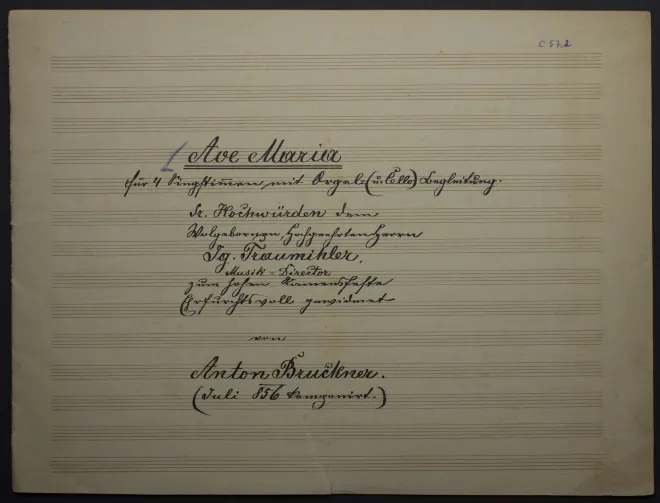 C 57,2
1 Ave Maria
für 4 Singstimmen, mit Orgel- (u. Cello) Begleitung.
Sr. Hochwürden dem
Wolgebornen, Hochgeehrten Herrn
Ig. Traumihler,
Musik-Director
zum hohen Namensfeste
Ehrfurchtsvoll gewidmet
von
Anton Bruckner.
(Juli 856 komponirt.)